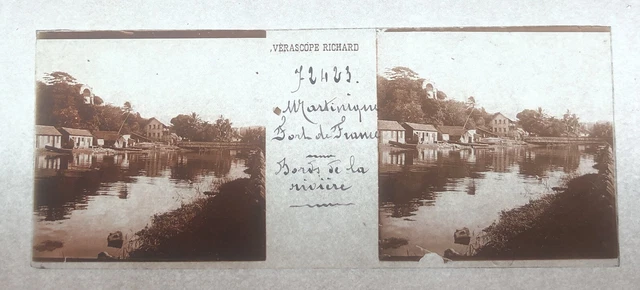 VÉRASCOPE RICHARD
72423.
Martinique
Fort de France
Bords de la
rivière